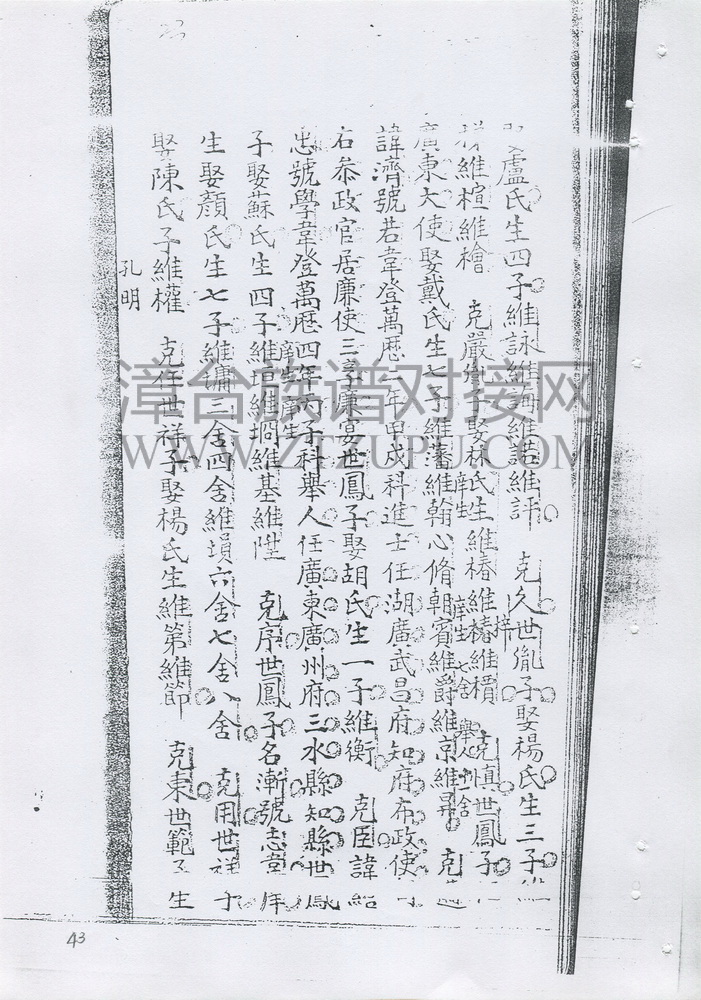 盧氏生四子維詠維諾維評 克久世胤子娶楊氏生三子
維楦維檜 克嚴 子娶林氏生維椿維樁維樻 克慎世鳳子
廣東大使娶戴氏生七子維藩維翰心脩朝賓維爵維京維昴 克
諱濟號若韋登萬曆二年甲戌科進士任湖廣武昌府知府布政使
右叅政官居廉使三享廉宴世鳳子娶胡氏生一子維衡 克臣諱紹
忠號學韋登萬曆四年丙子科舉人任廣東廣州府三水縣知縣世鳳
子娶蘇氏生四子維垣維堈維基維陞 克序世鳳子名漸號志韋庠
生娶顏氏生七子維墉三舍四舍維塤六舍七舍八舍 克用世祥子
娶陳氏子維權 克任世祥子娶楊氏生維第維節 克東世範子生
孔明
漳台族谱对接网
WWW.ZTZUPU.COM
43